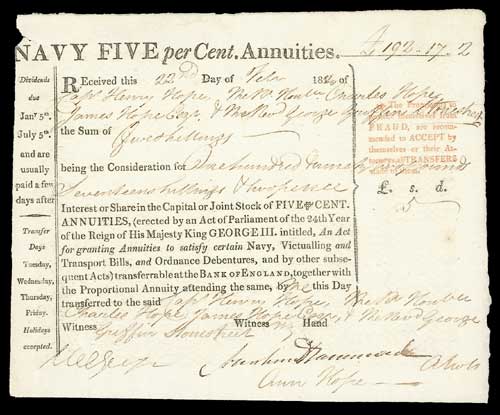 NAVY FIVE per Cent. Annuities. £ 192-17-2
Dividends
due
Jany 5th.
July 5th.
and are
usually
paid a few
days after
Transfer
Days
Tuesday,
Wednesday,
Thursday,
Friday.
Holidays
excepted.
Received this 22nd Day of Feby 18 of
Capt Henry Hope, The Rt Honble Charles Hope,
James Hope Esqr & The Revd George Griffin Stonestreet
the Sum of five shillings
being the Consideration for One hundred & ninety two Pounds
Seventeen shillings & two pence
Interest or Share in the Capital or Joint Stock of FIVE per CENT.
ANNUITIES, (erected by an Act of Parliament of the 24th Year
of the Reign of His Majesty King GEORGE III. intitled, An Act
for granting Annuities to satisfy certain Navy, Victualling and
Transport Bills, and Ordnance Debentures, and by other subse-
quent Acts) transferrable at the BANK OF ENGLAND, together with
the Proportional Annuity attending the same, by me this Day
transferred to the said Capt Henry Hope, The Rt Honble
Charles Hope, James Hope Esqr & The Revd George
Griffin Stonestreet
Witness my Hand
Witness
Ann Hope
The Proprietors to
FRAUD, are recom-
mended to ACCEPT by
themselves or their At-
TRANSFERS
£. s. d.
5